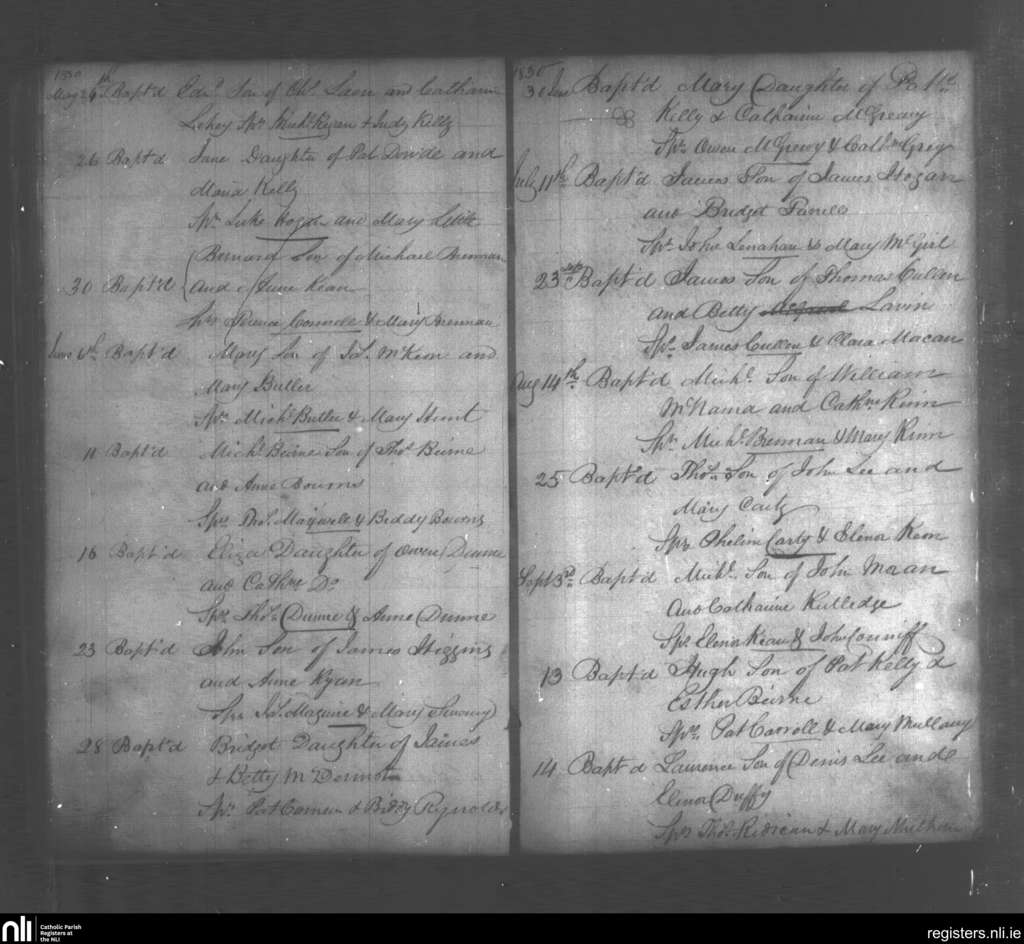 1830
May 24th Bapt'd Edwd Son of Chs and Catharine
Spn Michl Kyran & Judy Kelly
26 Bapt'd Jane Daughter of Pat Dowde and
Maria Kelly
Spn Luke Hogan and Mary
Bernard Son of Michael Brennan
30 Bapt'd and Jane Kean
Spn Connell & Mary Brennan
June 6th Bapt'd Mary Son of Js. McKeon and
Mary Butler
Spn Michl Butler & Mary Hunt
11 Bapt'd Michl Beirne Son of Thos Beirne
and Anne Bourns
Spn Thos. Maxwell & Biddy Bourns
16 Bapt'd Eliza Daughter of Owen Dunne
and Cathne Do
Spn Thos Dunne & Anne Dunne
23 Bapt'd John Son of James Higgins
and Anne Ryan
Spn Js. Maguire & Mary
28 Bapt'd Bridget Daughter of James
& Betty McDermott
Spn Pat & Biddy Reynolds
1830
3 June Bapt'd Mary Daughter of Patk
Kelly & Catharine McGreavy
Spn Owen McGrevy & Cathn Greg
July 11th Bapt'd James Son of James Hogan
and Bridget
Spn John Lenahan & Mary McGirl
23rd Bapt'd James Son of Thomas Cullan
and Betty Lavin
Spn James Cullen & Clara Macan
Aug 14th Bapt'd Michl. Son of William
McNama and Cathne Kinn
Spn Michl Brennan & Mary Kinn
25 Bapt'd Thos. Son of John Lee and
Mary Carty
Spn Phelim Carty & Elenor Keon
Sept 3rd Bapt'd Michl. Son of John Moran
and Catharine Rutledge
Spn Elenor Kean & John Conniff
13 Bapt'd Hugh Son of Pat Kelly d
Esther Beirne
Spn Pat Carroll & Mary Mullany
14 Bapt'd Laurence Son of Denis Lee and
Elenor Duffy
Spn Thos. & Mary
nli
Catholic Parish
Registers at
the NLI
registers.nli.ie